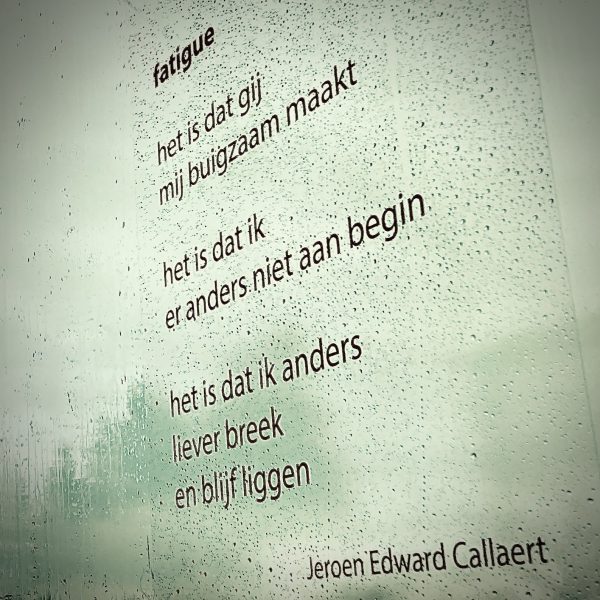 fatigue
het is dat gij
mij buigzaam maakt
het is dat ik
er anders niet aan begin
het is dat ik anders
liever breek
en blijf liggen
Jeroen Edward Callaert